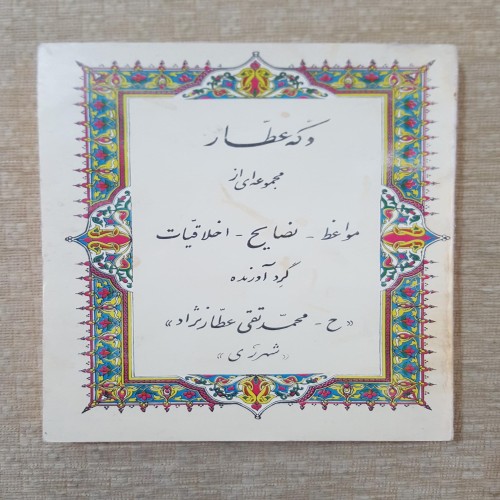 دکّه عطّار
مجموعه‌ای از
مواعظ - نصایح - اخلاقیّات
گردآورنده
«ح - محمّد تقی عطّارنژاد»
«شهرری»